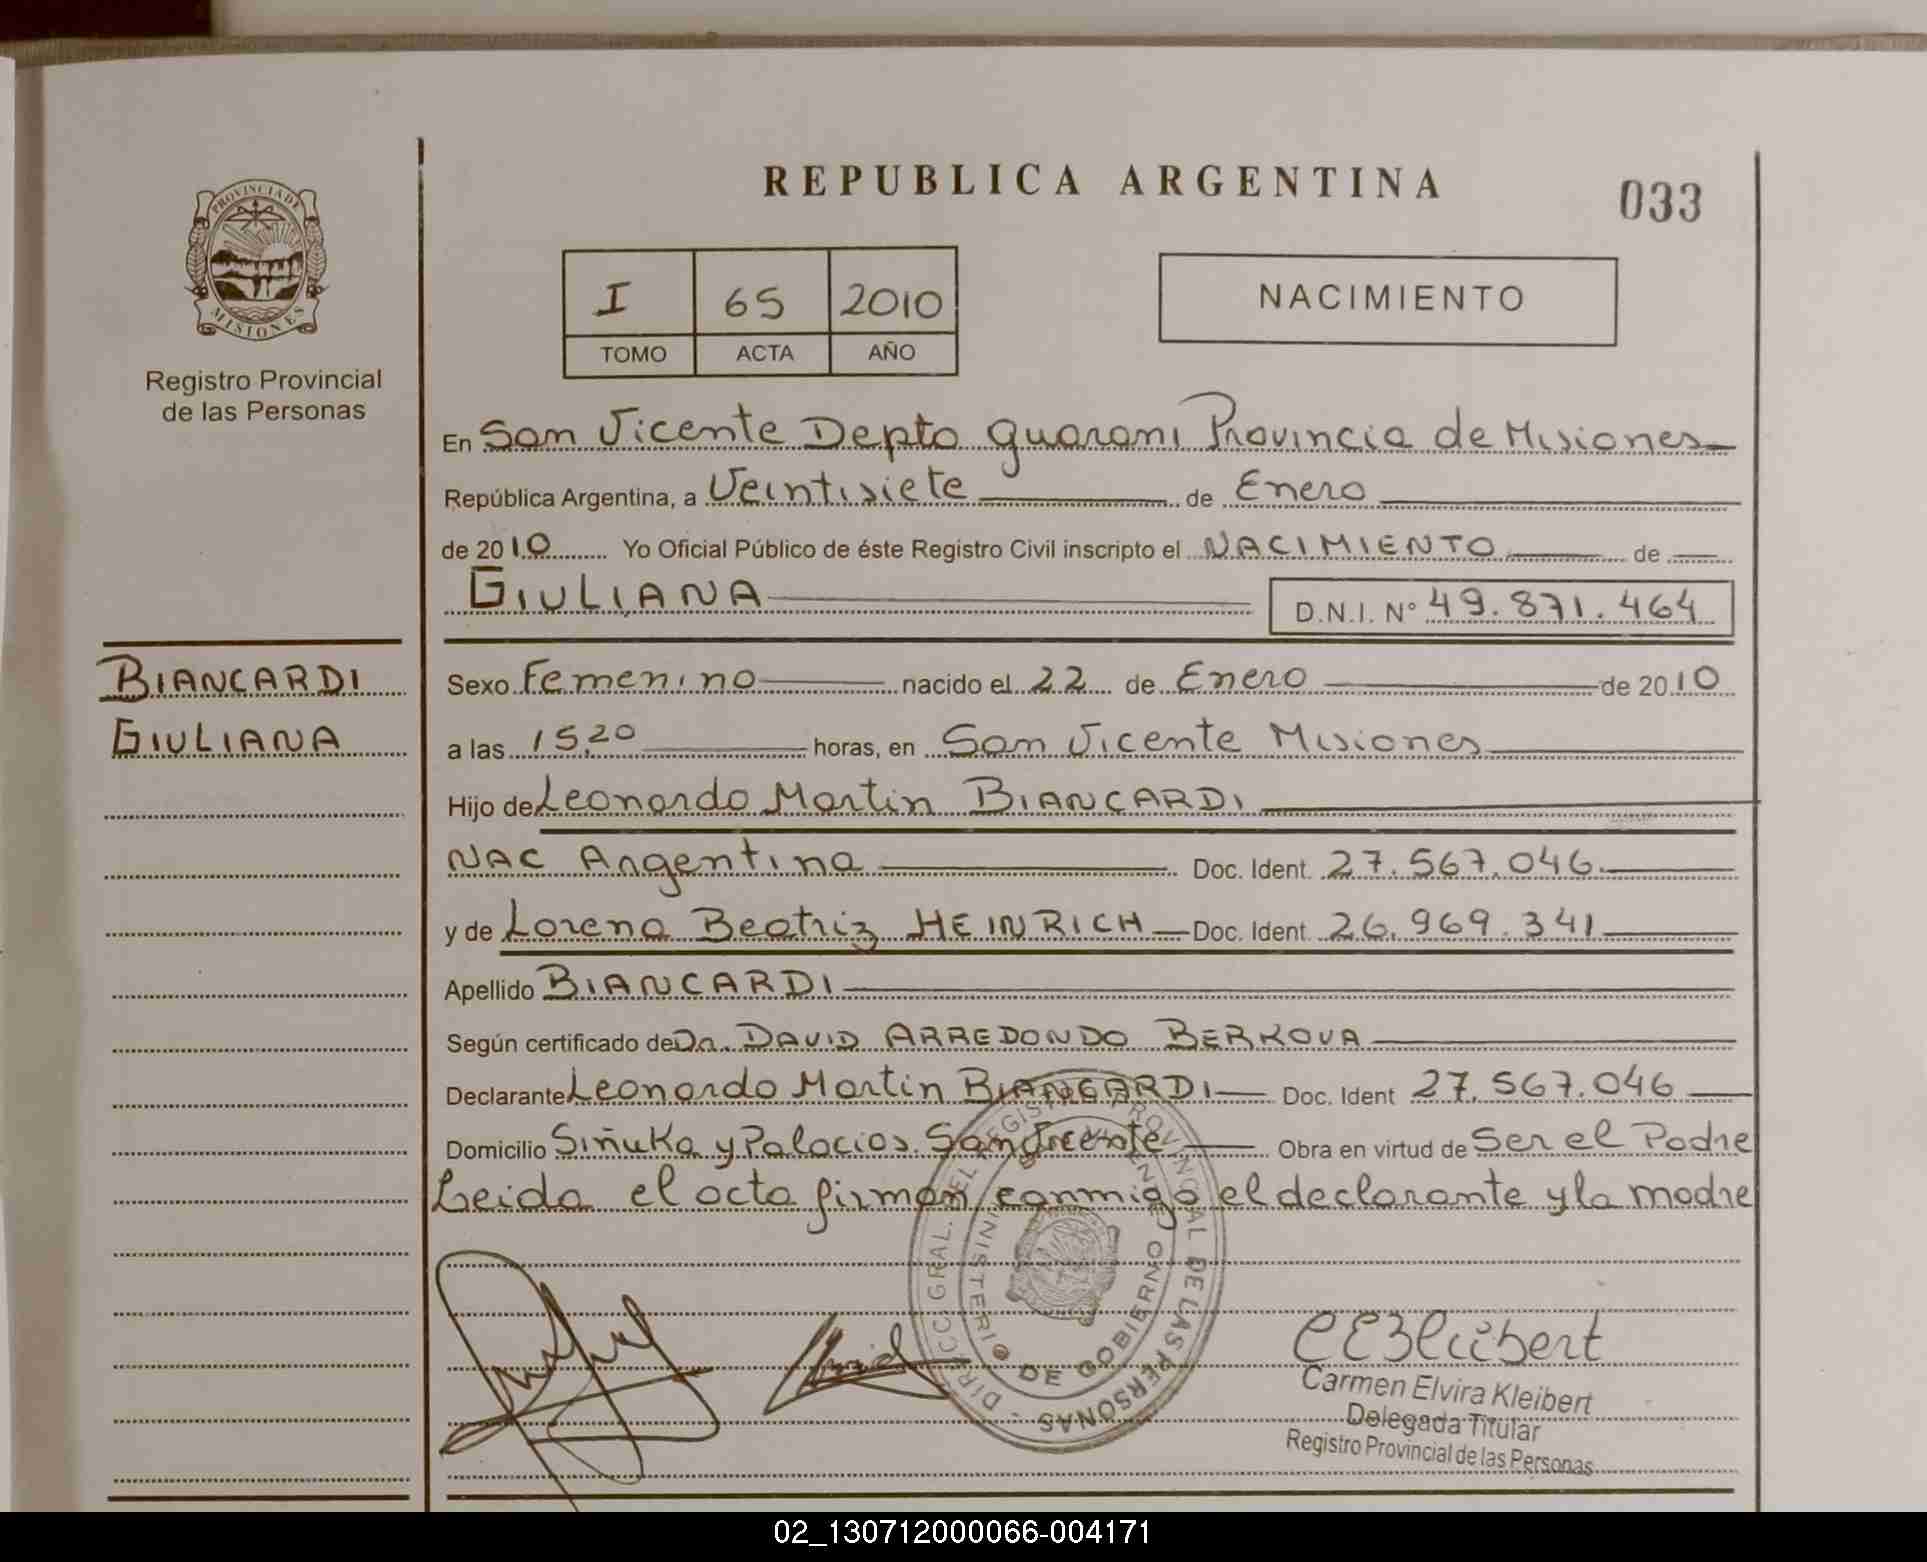 REPUBLICA ARGENTINA
033
PROVINCIA DE
MISIONES
Registro Provincial
de las Personas
I 65 2010
TOMO ACTA AÑO
NACIMIENTO
En San Vicente Depto Guarani Provincia de Misiones
República Argentina, a Veintisiete de Enero
de 2010 Yo Oficial Público de éste Registro Civil inscripto el NACIMIENTO de
GIULIANA D.N.I. N° 49.871.464
BIANCARDI
GIULIANA
Sexo Femenino nacido el 22 de Enero de 2010
a las 15,20 horas, en San Vicente Misiones
Hijo de Leonardo Martin BIANCARDI
NAC Argentina Doc. Ident. 27.567.046
y de Lorena Beatriz HEINRICH Doc. Ident. 26.969.341
Apellido BIANCARDI
Según certificado de Dr. DAVID ARREDONDO BERKOVA
Declarante Leonardo Martin BIANCARDI Doc. Ident 27.567.046
Domicilio Siñuka y Palacios. San Vicente Obra en virtud de Ser el Padre
Leida el acta firman conmigo el declarante y la madre
DIRECC. GRAL. DEL REGISTRO PROVINCIAL DE LAS PERSONAS
MINISTERIO DE GOBIERNO
Carmen Elvira Kleibert
Delegada Titular
Registro Provincial de las Personas
02_130712000066-004171